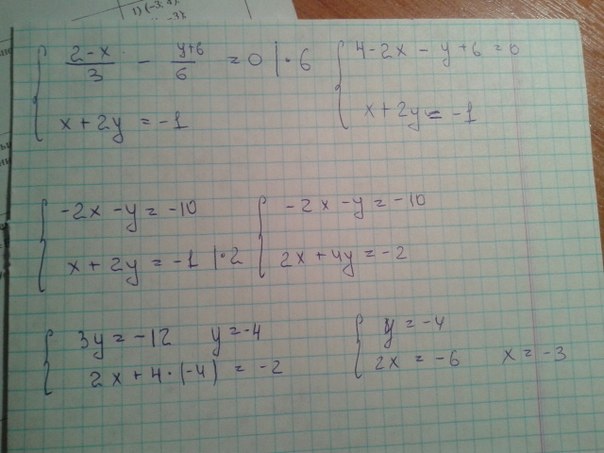 1) (-3; 4).
-3).
{ (2-x)/3 - (y+6)/6 = 0 | · 6
x + 2y = -1
{ 4 - 2x - y + 6 = 0
x + 2y = -1
{ -2x - y = -10
x + 2y = -1 | · 2
{ -2x - y = -10
2x + 4y = -2
{ 3y = -12 y = -4
2x + 4 · (-4) = -2
{ y = -4
2x = -6 x = -3